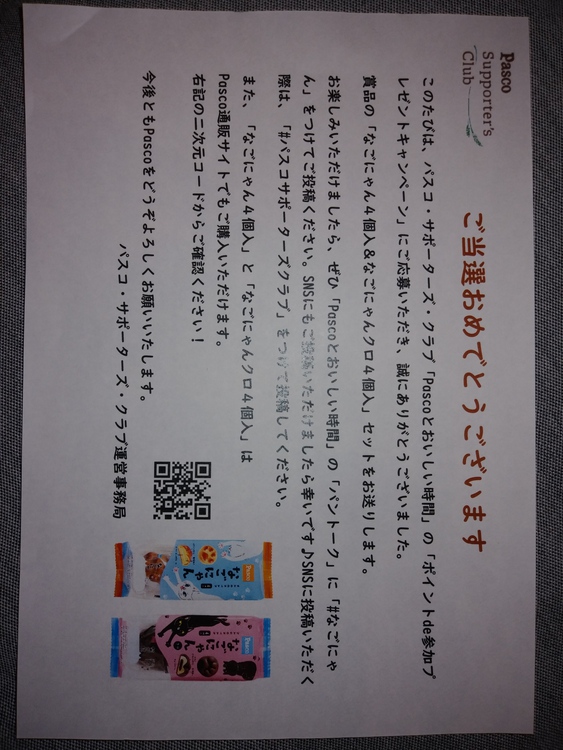 Pasco
Supporter's
Club
ご当選おめでとうございます
このたびは、パスコ・サポーターズ・クラブ「Pascoとおいしい時間」の「ポイントde参加プ
レゼントキャンペーン」にご応募いただき、誠にありがとうございました。
賞品の「なごにゃん４個入&なごにゃんクロ４個入」セットをお送りします。
お楽しみいただけましたら、ぜひ「Pascoとおいしい時間」の「パントーク」に「#なごにゃ
ん」をつけてご投稿ください。SNSにもご投稿いただけましたら幸いです♪SNSに投稿いただく
際は、「#パスコサポーターズクラブ」をつけて投稿してください。
また、「なごにゃん４個入」と「なごにゃんクロ４個入」は
Pasco通販サイトでもご購入いただけます。
右記の二次元コードからご確認ください！
今後ともPascoをどうぞよろしくお願いいたします。
パスコ・サポーターズ・クラブ運営事務局
Pasco
なごにゃん
Pasco
なごにゃん